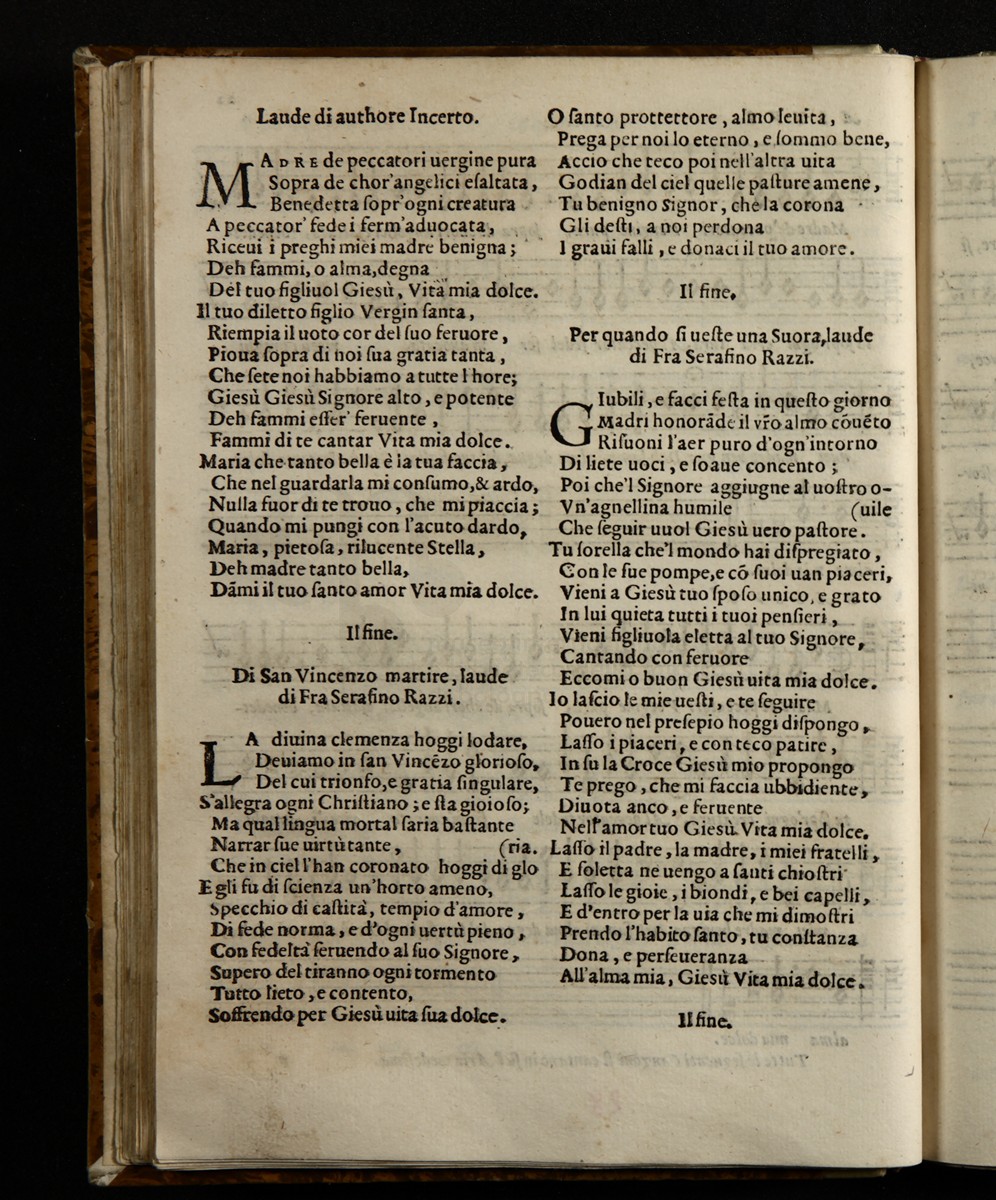 Laude di authore Incerto.
MADRE de peccatori uergine pura
Sopra de chor'angelici eſaltata,
Benedetta ſopr'ogni creatura
A peccator' fede i ferm'aduocata,
Riceui i preghi miei madre benigna;
Deh fammi, o alma, degna
Del tuo figliuol Gieſù, Vita mia dolce.
Il tuo diletto figlio Vergin ſanta,
Riempia il uoto cor del ſuo feruore,
Pioua ſopra di noi ſua gratia tanta,
Che ſete noi habbiamo a tutte l'hore;
Gieſù Gieſù Signore alto, e potente
Deh fammi eſſer' feruente,
Fammi di te cantar Vita mia dolce.
Maria che tanto bella è la tua faccia,
Che nel guardarla mi conſumo,& ardo,
Nulla fuor di te trouo, che mi piaccia;
Quando mi pungi con l'acuto dardo,
Maria, pietoſa, rilucente Stella,
Deh madre tanto bella,
Dāmi il tuo ſanto amor Vita mia dolce.
Il fine.
Di San Vincenzo martire, laude
di Fra Serafino Razzi.
LA diuina clemenza hoggi lodare,
Deuiamo in ſan Vincēzo glorioſo,
Del cui trionfo,e gratia ſingulare,
S'allegra ogni Chriſtiano ; e ſta gioioſo;
Ma qual lingua mortal ſaria baſtante
Narrar ſue uirtù tante, (ria.
Che in ciel l'han coronato hoggi di glo
Egli fu di ſcienza un'horto ameno,
Specchio di caſtità, tempio d'amore,
Di fede norma, e d'ogni uertù pieno,
Con fedeltà ſeruendo al ſuo Signore,
Supero del tiranno ogni tormento
Tutto lieto, e contento,
Soffrendo per Gieſù uita ſua dolce.
O ſanto prottettore, almo leuita,
Prega per noi lo eterno, e ſommo bene,
Accio che teco poi nell'altra uita
Godian del ciel quelle paſture amene,
Tu benigno Signor, che la corona
Gli deſti, a noi perdona
I graui falli, e donaci il tuo amore.
Il fine,
Per quando ſi ueſte una Suora, laude
di Fra Serafino Razzi.
GIubili, e facci feſta in queſto giorno
Madri honorāde il vr̄o almo cōuēto
Riſuoni l'aer puro d'ogn'intorno
Di liete uoci, e ſoaue concento;
Poi che'l Signore aggiugne al uoſtro o-
Vn'agnellina humile (uile
Che ſeguir uuol Gieſù uero paſtore.
Tu ſorella che'l mondo hai diſpregiato,
Con le ſue pompe,e cō ſuoi uan piaceri,
Vieni a Gieſù tuo ſpoſo unico, e grato
In lui quieta tutti i tuoi penſieri,
Vieni figliuola eletta al tuo Signore,
Cantando con feruore
Eccomi o buon Gieſù uita mia dolce.
Io laſcio le mie ueſti, e te ſeguire
Pouero nel preſepio hoggi diſpongo,
Laſſo i piaceri, e con teco patire,
In ſu la Croce Gieſù mio propongo
Te prego, che mi faccia ubbidiente,
Diuota anco, e feruente
Nell'amor tuo Gieſù Vita mia dolce.
Laſſo il padre, la madre, i miei fratelli,
E ſoletta ne uengo a ſanti chioſtri
Laſſo le gioie, i biondi, e bei capelli,
E d'entro per la uia che mi dimoſtri
Prendo l'habito ſanto, tu conſtanza
Dona, e perſeueranza
All'alma mia, Gieſù Vita mia dolce.
Il fine.